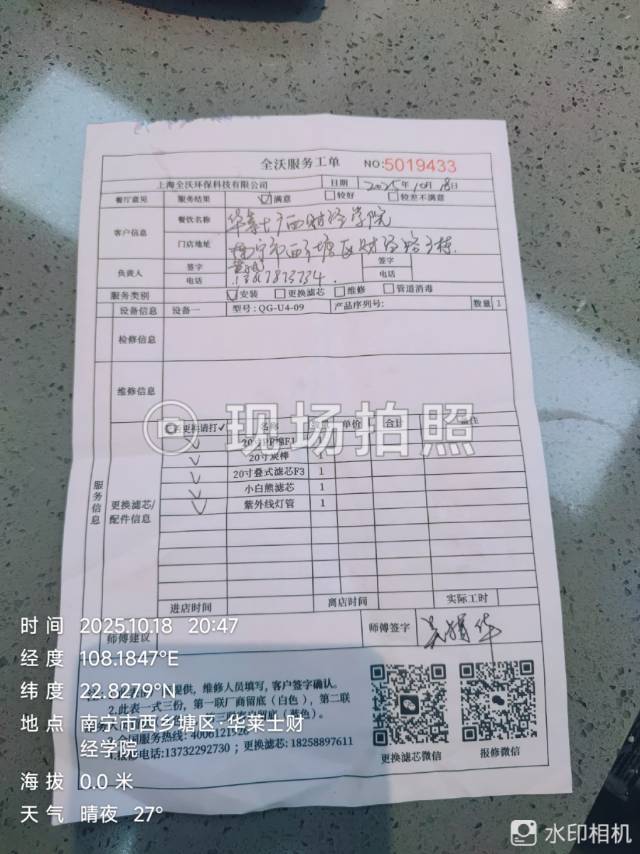 全沃服务工单 NO:5019433
上海全沃环保科技有限公司 日期 2025年10月18日
餐厅意见 服务结果 满意 较好 较差不满意
客户信息 餐饮名称 华莱士广西财经学院
门店地址 南宁市西乡塘区财经
负责人 签字 签字
电话 电话
服务类别 安装 更换滤芯 维修 管道消毒
设备信息 设备一 型号: QG-U4-09 产品序列号: 数量 1
检修信息
维修信息
现场拍照
更换请打✓ 名称 单价 合计
20寸
20寸炭棒 1
20寸叠式滤芯F3 1
小白熊滤芯 1
紫外线灯管 1
服务信息
更换滤芯/配件信息
进店时间 离店时间 实际工时
师傅建议 师傅签字
提供, 维修人员填写, 客户签字确认.
2.此表一式三份, 第一联厂商留底(白色), 第二联
(蓝色).
全国服务热线:
电话:13732292730 ; 更换滤芯: 18258897611
更换滤芯微信 报修微信
时 间 2025.10.18 20:47
经 度 108.1847°E
纬 度 22.8279°N
地 点 南宁市西乡塘区·华莱士财
经学院
海 拔 0.0 米
天 气 晴夜 27°
水印相机